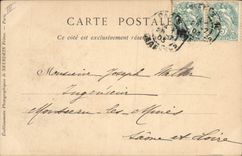 CARTE POSTALE
Ce côté est exclusivement réservé
Monsieur Joseph
Ingénieur
Montceau les Mines
Saône et Loire
Etablissements Photographiques de NEURDEIN Frères. - Paris